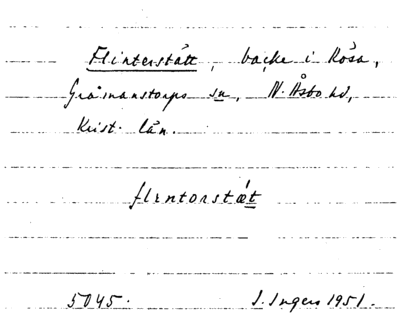 Flinterstätt, backe i Rösa,
Gråmanstorps sn, N. Åsbo hd,
Krist. län.
flentorstæt
5045. I. Ingers 1951.